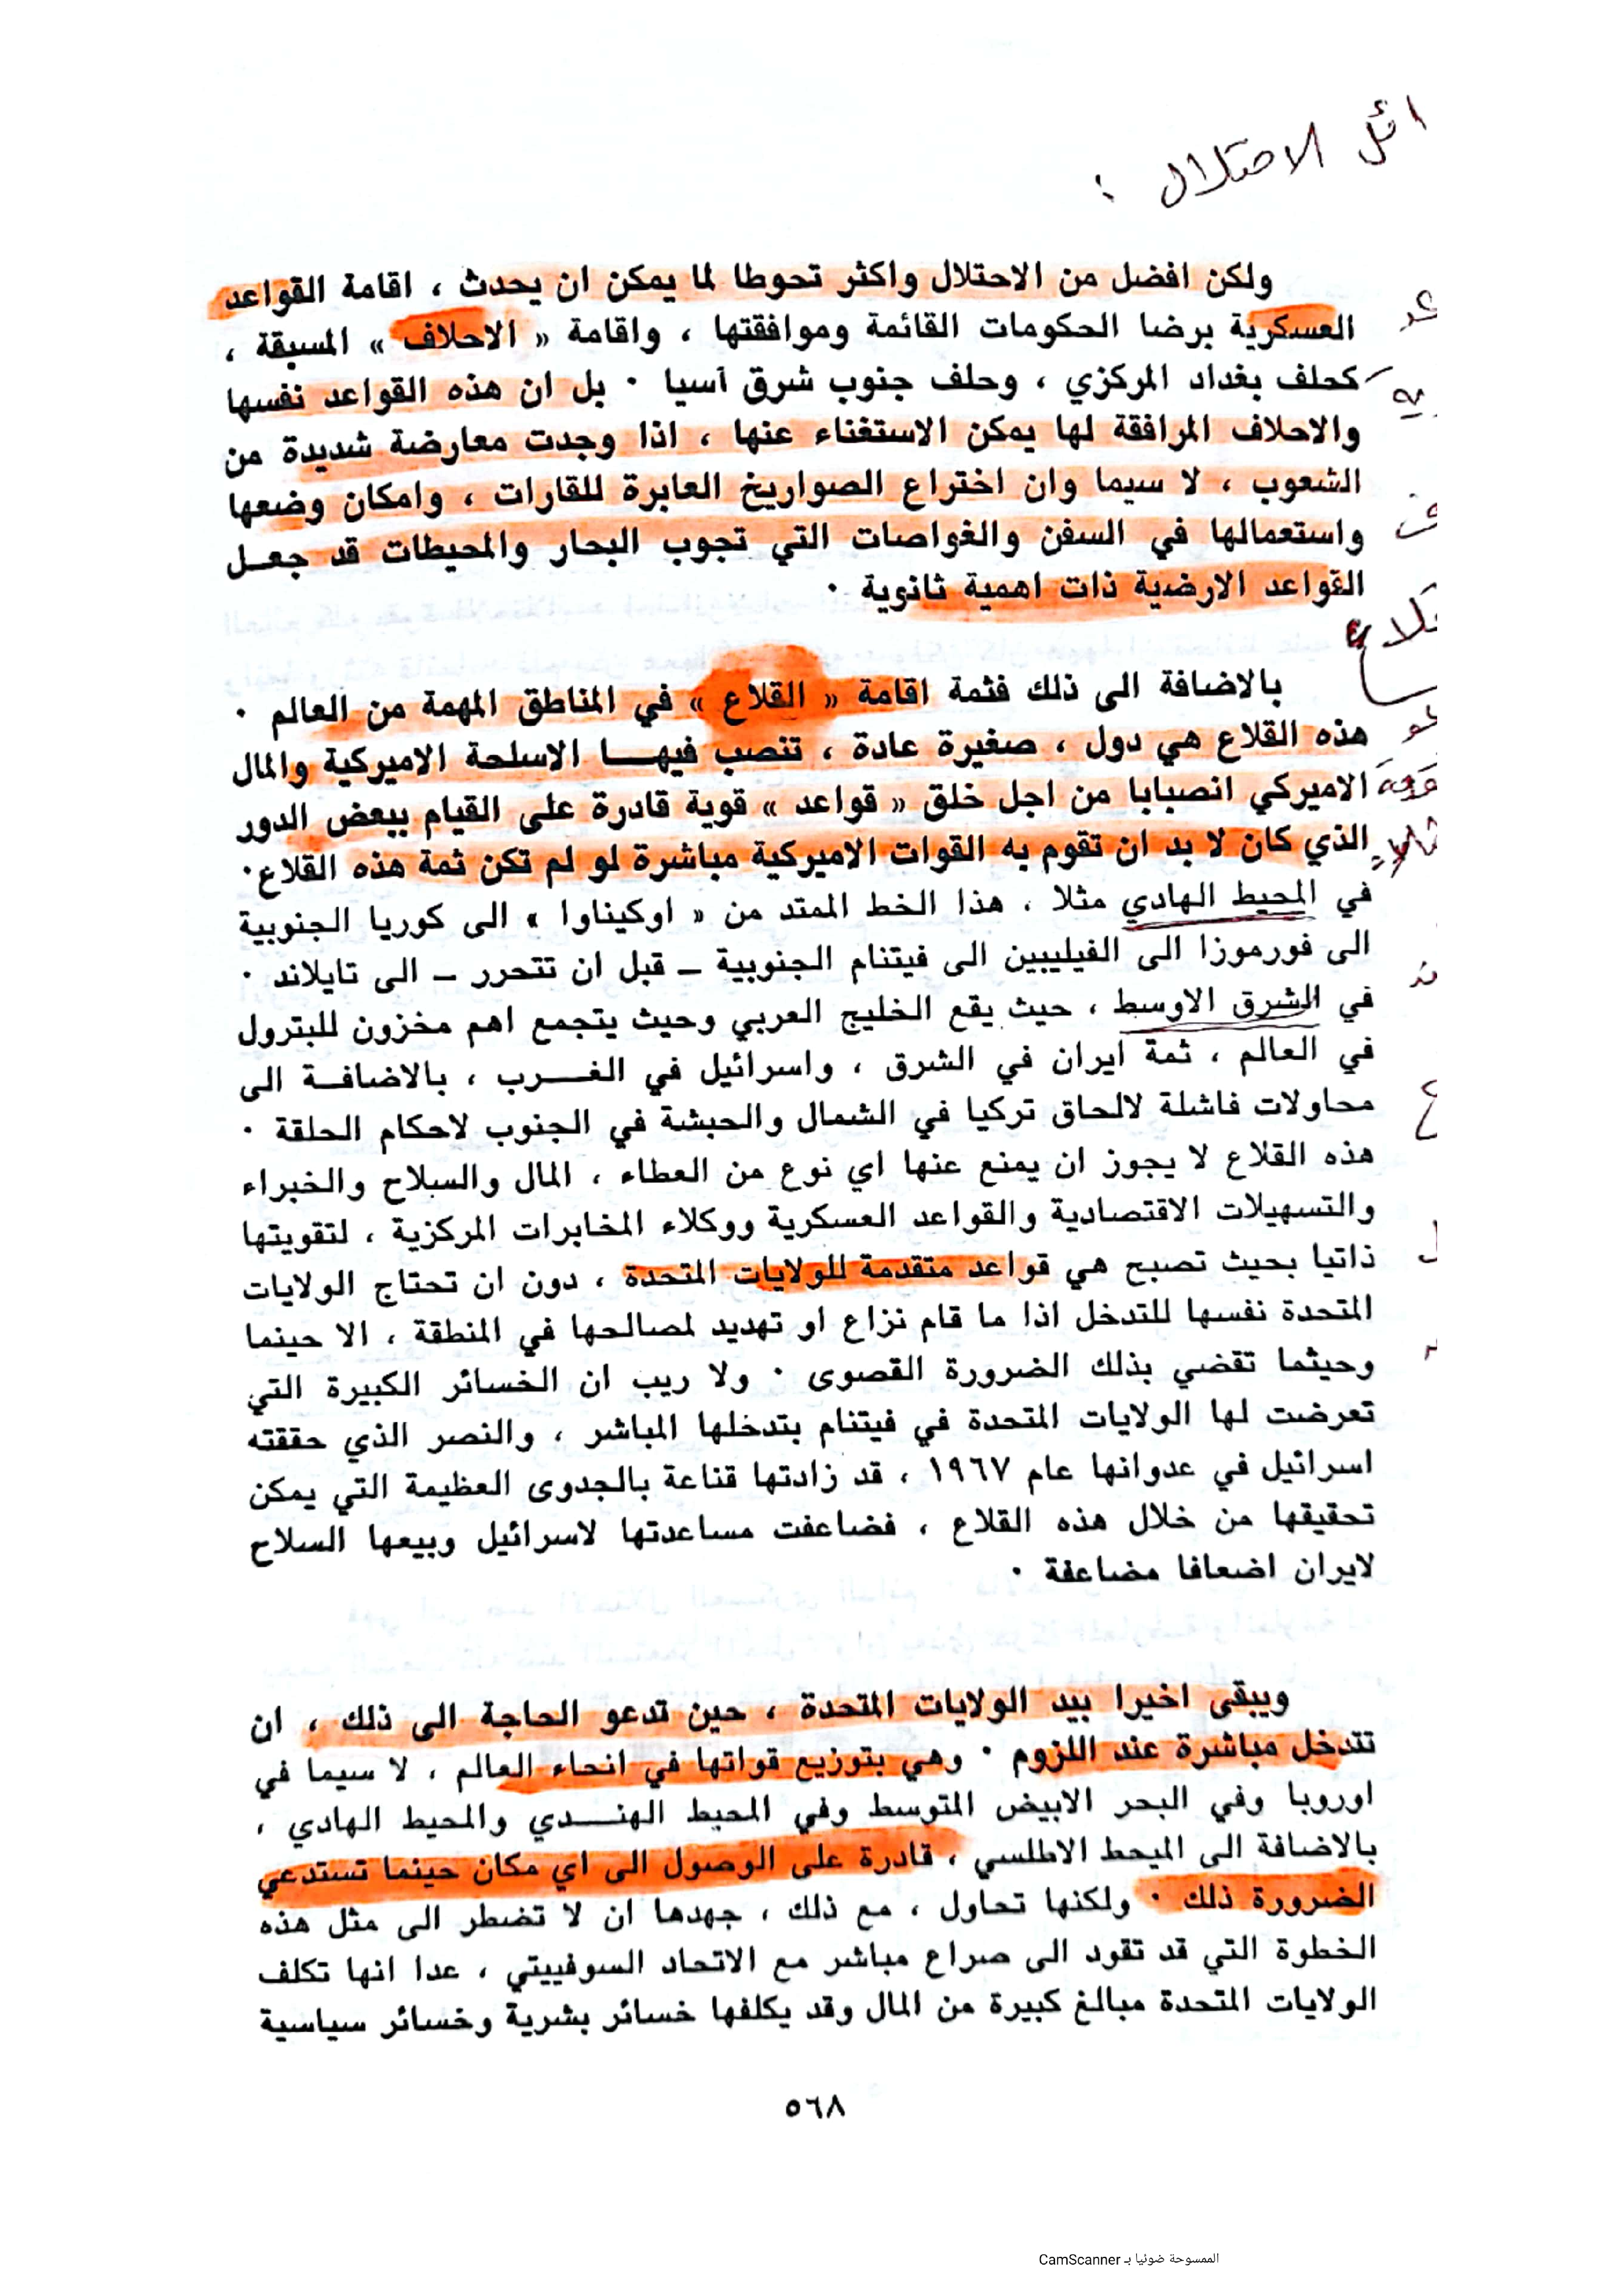 ائل الاحتلال :
ولكن افضل من الاحتلال واكثر تحوطا لما يمكن ان يحدث ، اقامة القواعد
العسكرية برضا الحكومات القائمة وموافقتها ، واقامة « الاحلاف » المسبقة ،
كحلف بغداد المركزي ، وحلف جنوب شرق آسيا ٠ بل ان هذه القواعد نفسها
والاحلاف المرافقة لها يمكن الاستغناء عنها ، اذا وجدت معارضة شديدة من
الشعوب ، لا سيما وان اختراع الصواريخ العابرة للقارات ، وامكان وضعها
واستعمالها في السفن والغواصات التي تجوب البحار والمحيطات قد جعل
القواعد الارضية ذات اهمية ثانوية ٠
بالاضافة الى ذلك فثمة اقامة « القلاع » في المناطق المهمة من العالم ٠
هذه القلاع هي دول ، صغيرة عادة ، تنصب فيها الاسلحة الاميركية والمال
الاميركي انصبابا من اجل خلق « قواعد » قوية قادرة على القيام ببعض الدور
الذي كان لا بد ان تقوم به القوات الاميركية مباشرة لو لم تكن ثمة هذه القلاع٠
في المحيط الهادي مثلا ، هذا الخط الممتد من « اوكيناوا » الى كوريا الجنوبية
الى فورموزا الى الفيليبين الى فيتنام الجنوبية – قبل ان تتحرر – الى تايلاند ٠
في الشرق الاوسط ، حيث يقع الخليج العربي وحيث يتجمع اهم مخزون للبترول
في العالم ، ثمة ايران في الشرق ، واسرائيل في الغرب ، بالاضافة الى
محاولات فاشلة لالحاق تركيا في الشمال والحبشة في الجنوب لاحكام الحلقة ٠
هذه القلاع لا يجوز ان يمنع عنها اي نوع من العطاء ، المال والسلاح والخبراء
والتسهيلات الاقتصادية والقواعد العسكرية ووكلاء المخابرات المركزية ، لتقويتها
ذاتيا بحيث تصبح هي قواعد متقدمة للولايات المتحدة ، دون ان تحتاج الولايات
المتحدة نفسها للتدخل اذا ما قام نزاع او تهديد لمصالحها في المنطقة ، الا حينما
وحيثما تقضي بذلك الضرورة القصوى ٠ ولا ريب ان الخسائر الكبيرة التي
تعرضت لها الولايات المتحدة في فيتنام بتدخلها المباشر ، والنصر الذي حققته
اسرائيل في عدوانها عام ١٩٦٧ ، قد زادتها قناعة بالجدوى العظيمة التي يمكن
تحقيقها من خلال هذه القلاع ، فضاعفت مساعدتها لاسرائيل وبيعها السلاح
لايران اضعافا مضاعفة ٠
ويبقى اخيرا بيد الولايات المتحدة ، حين تدعو الحاجة الى ذلك ، ان
تتدخل مباشرة عند اللزوم ٠ وهي بتوزيع قواتها في انحاء العالم ، لا سيما في
اوروبا وفي البحر الابيض المتوسط وفي المحيط الهندي والمحيط الهادي ،
بالاضافة الى الميحط الاطلسي ، قادرة على الوصول الى اي مكان حينما تستدعي
الضرورة ذلك ٠ ولكنها تحاول ، مع ذلك ، جهدها ان لا تضطر الى مثل هذه
الخطوة التي قد تقود الى صراع مباشر مع الاتحاد السوفييتي ، عدا انها تكلف
الولايات المتحدة مبالغ كبيرة من المال وقد يكلفها خسائر بشرية وخسائر سياسية
٥٦٨
الممسوحة ضوئيا بـ CamScanner